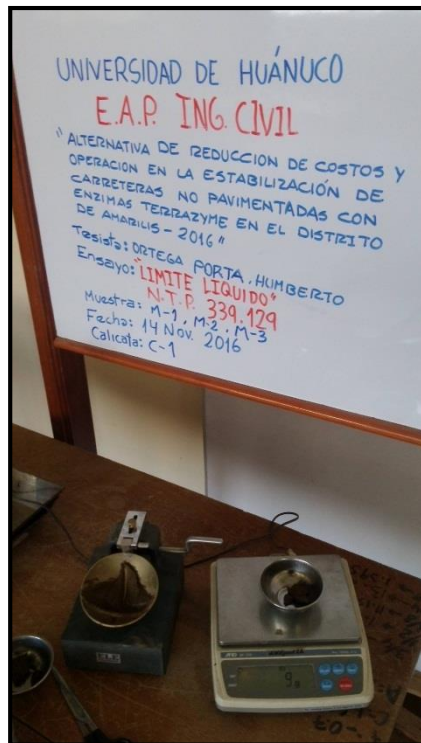 UNIVERSIDAD DE HUÁNUCO
E.A.P. ING. CIVIL
"ALTERNATIVA DE REDUCCION DE COSTOS Y
OPERACION EN LA ESTABILIZACIÓN DE
CARRETERAS NO PAVIMENTADAS CON
ENZIMAS TERRAZYME EN EL DISTRITO
DE AMARILIS - 2016"
Tesista: ORTEGA PORTA. HUMBERTO
Ensayo: "LIMITE LIQUIDO"
N.T.P. 339.129
Muestra: M-1, M-2, M-3
Fecha: 14 Nov. 2016
Calicata: C-1
ELE
AND